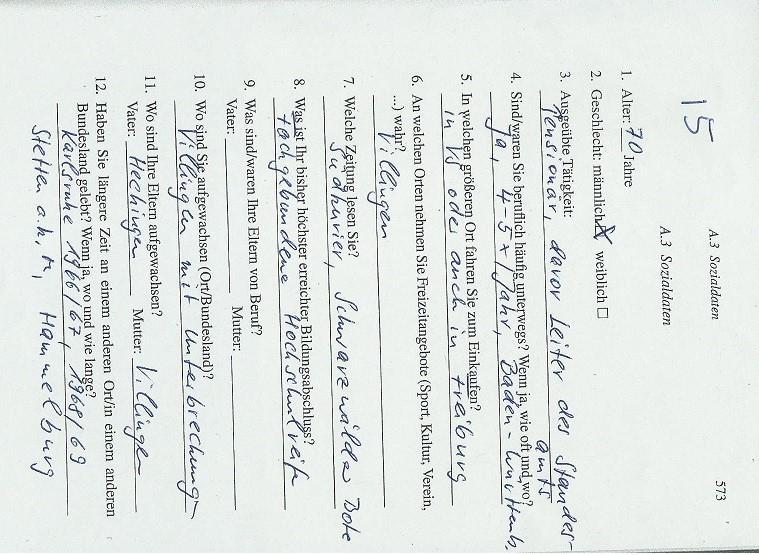 573
A.3 Sozialdaten
A.3 Sozialdaten
15
1. Alter: 70 Jahre
2. Geschlecht: männlich ☒ weiblich ☐
3. Ausgeübte Tätigkeit:
Pensionär, davor Leiter des Standes-
amts
4. Sind/waren Sie beruflich häufig unterwegs? Wenn ja, wie oft und wo?
Ja, 4-5 x / Jahr, Baden-Württemb.
5. In welchen größeren Ort fahren Sie zum Einkaufen?
in VS oder auch in Freiburg
6. An welchen Orten nehmen Sie Freizeitangebote (Sport, Kultur, Verein,
...) wahr?
Villingen
7. Welche Zeitung lesen Sie?
Südkurier, Schwarzwälder Bote
8. Was ist Ihr bisher höchster erreichter Bildungsabschluss?
Fachgebundene Hochschulreife
9. Was sind/waren Ihre Eltern von Beruf?
Vater: Mutter:
10. Wo sind Sie aufgewachsen (Ort/Bundesland)?
Villingen mit Unterbrechungen
11. Wo sind Ihre Eltern aufgewachsen?
Vater: Hechingen Mutter: Villingen
12. Haben Sie längere Zeit an einem anderen Ort/in einem anderen
Bundesland gelebt? Wenn ja, wo und wie lange?
Karlsruhe 1966/67, 1968/69
Stetten a.k.M., Hammelburg